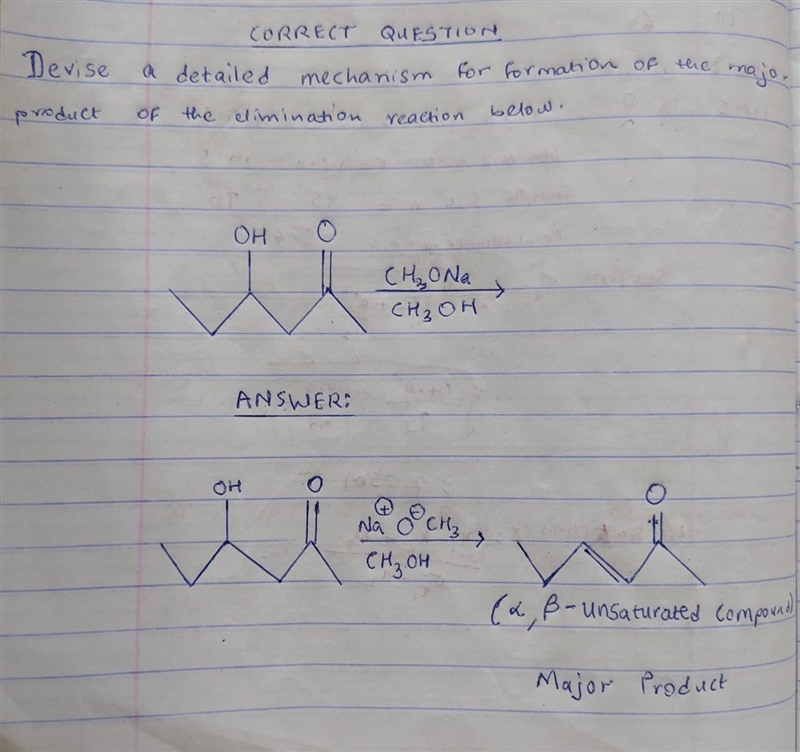 CORRECT QUESTION
Devise a detailed mechanism for formation of the major
product of the elimination reaction below.
OH O
CH3ONa
CH3OH
ANSWER:
OH O
Na⊕ O⊖CH3
CH3OH
O
(α, β-unsaturated compound)
Major Product